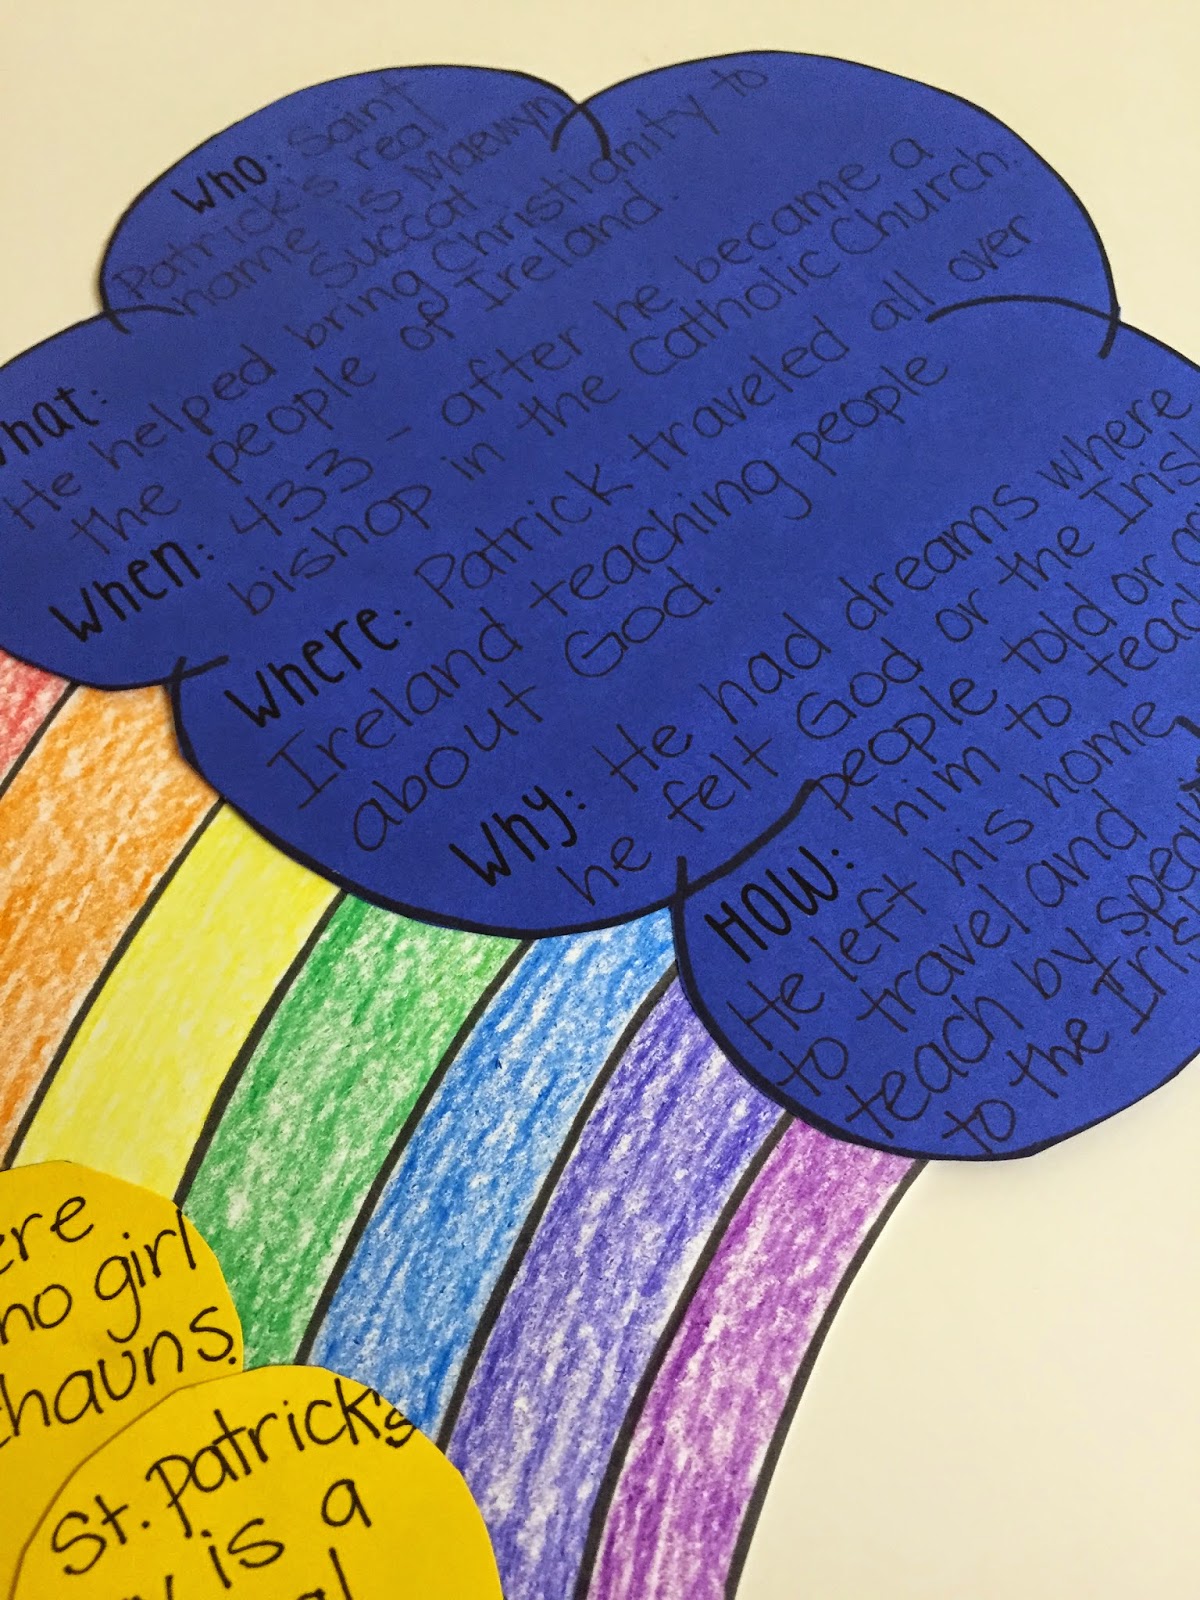 Who: Saint
Patrick's real
name is Maewyn
Succat
What:
He helped bring Christianity to
the people of Ireland.
When: 433 - after he became a
bishop in the Catholic Church.
Where: Patrick traveled all over
Ireland teaching people
about God.
Why: He had dreams where
he felt God or the Irish
people told or
him to teach
How:
He left his home
to travel and
teach by
to the
ere
no girl
chauns.
St. Patrick's
is a